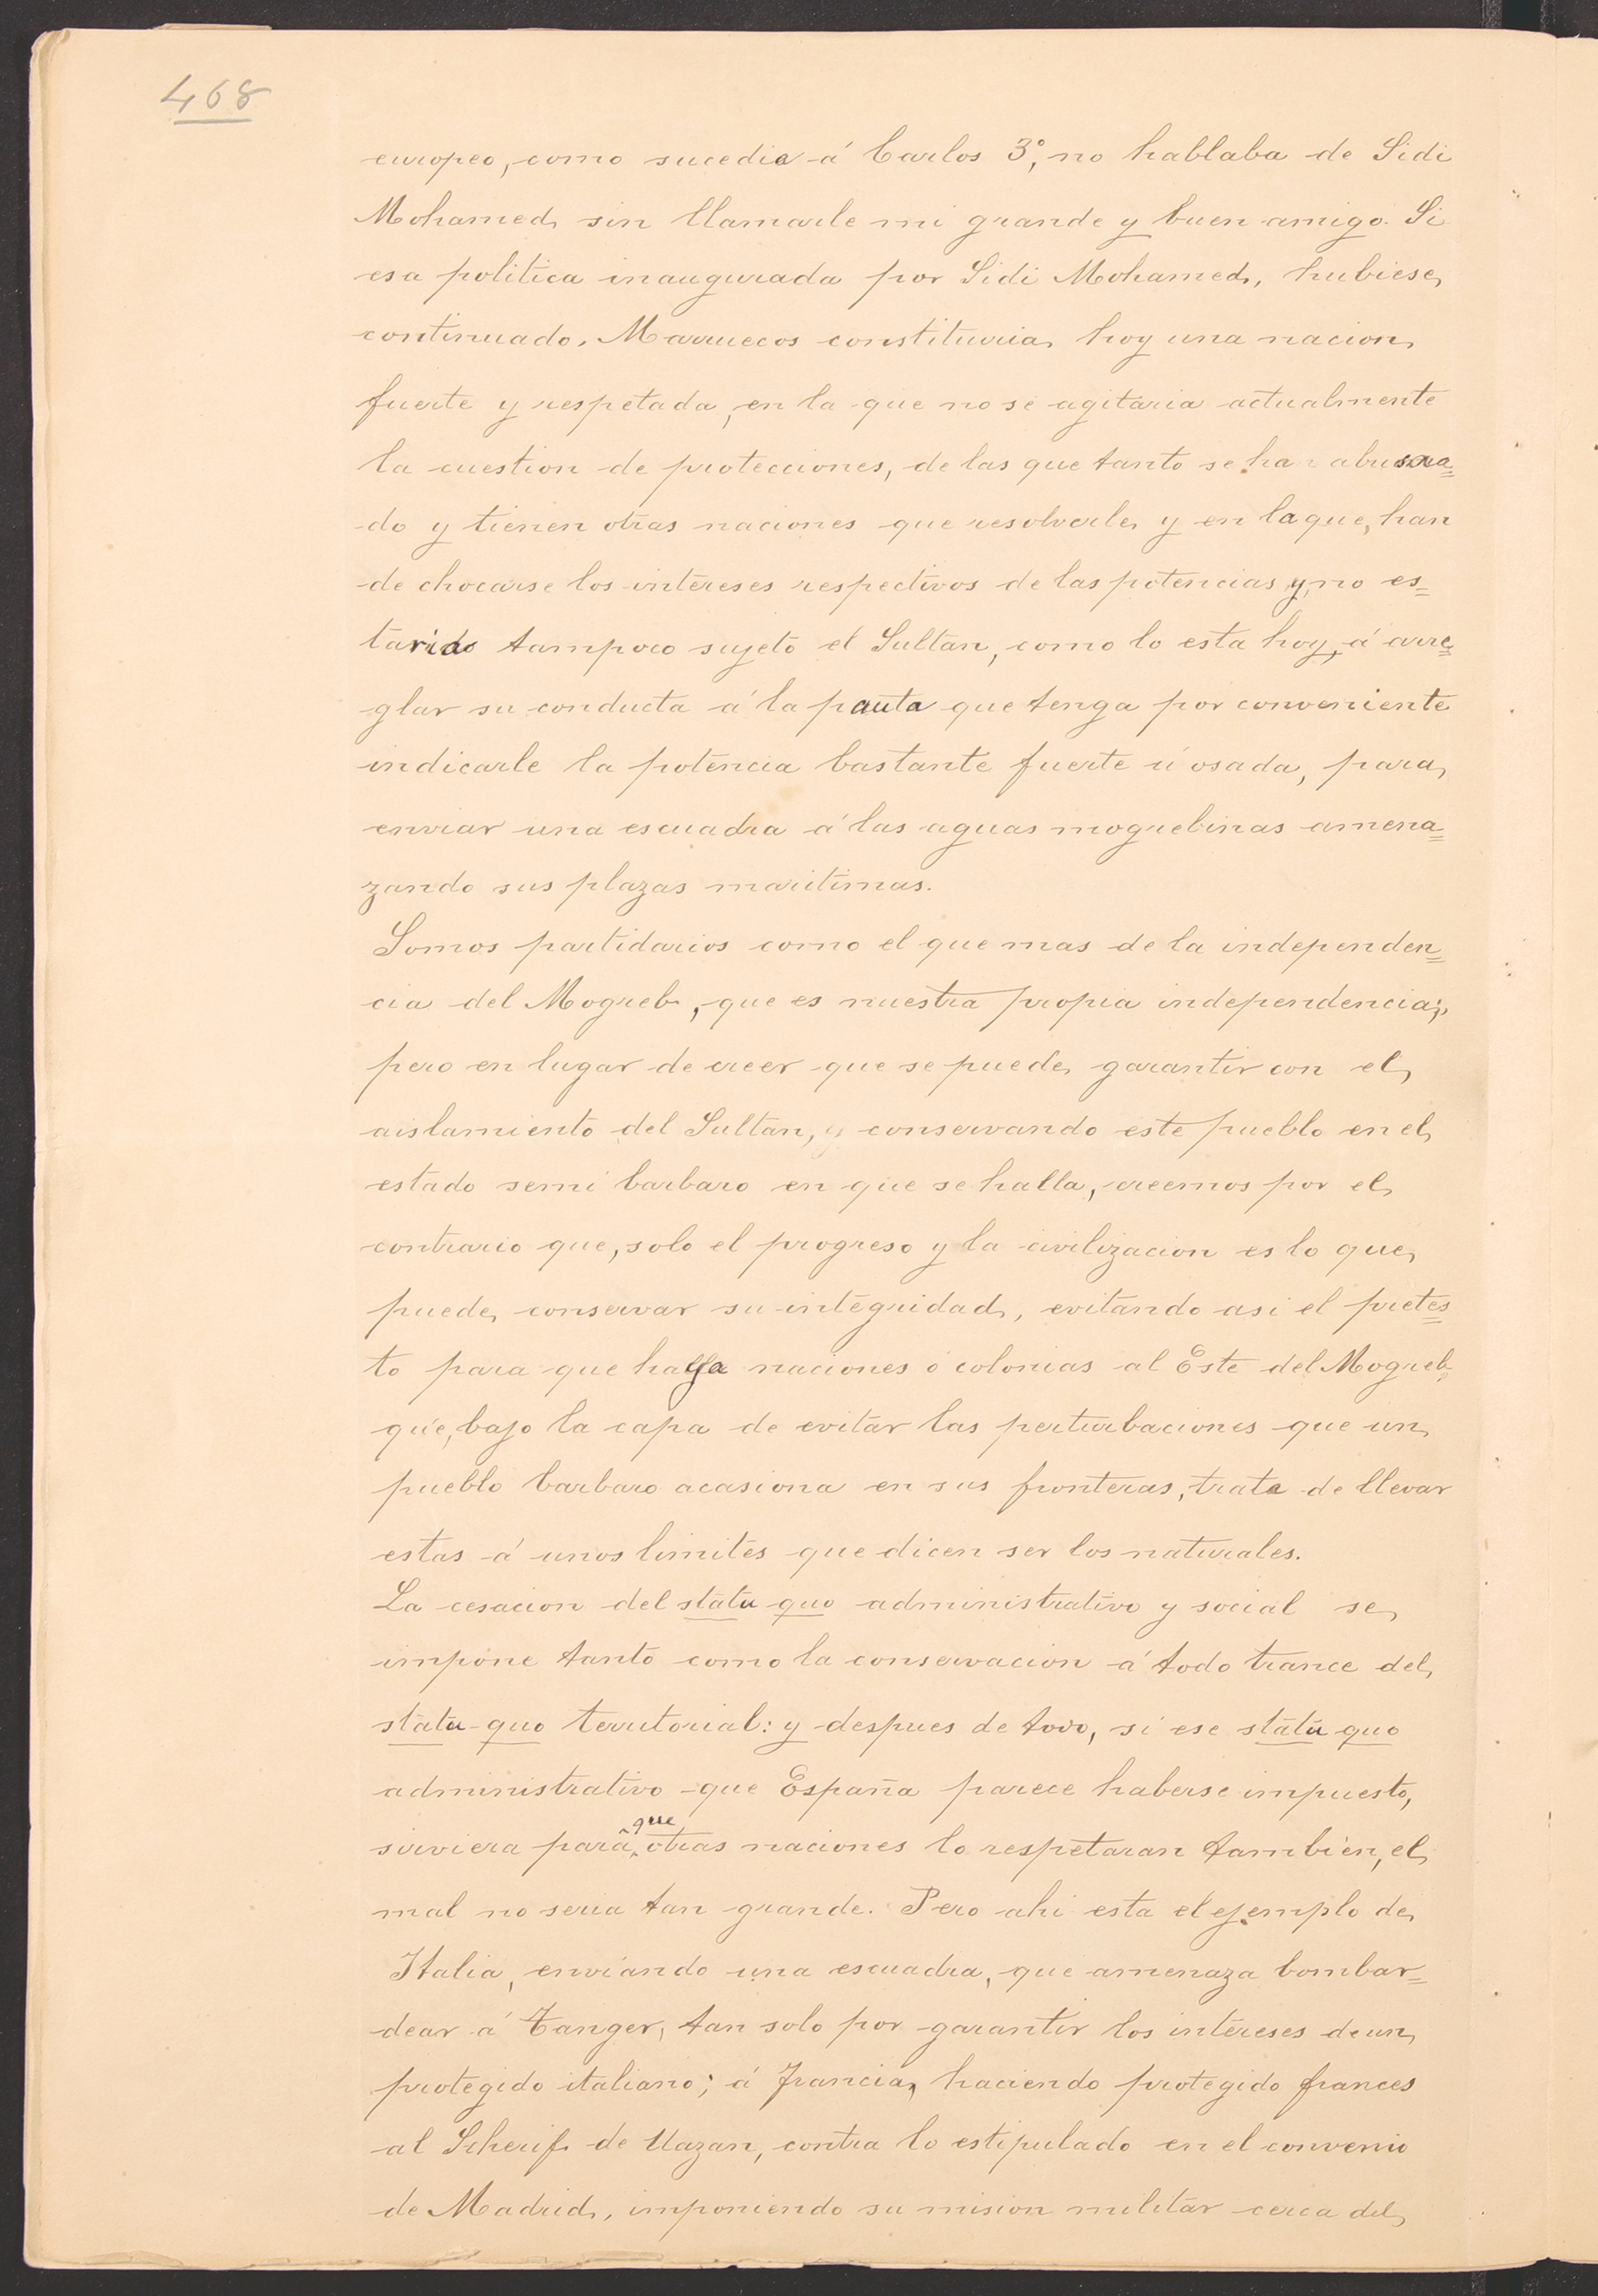 468
europeo, como sucedia á Carlos 3º, no hablaba de Sidi
Mohamed sin llamarle mi grande y buen amigo. Si
esa politica inaugurada por Sidi Mohamed, hubiese
continuado, Marruecos constituiria hoy una nacion
fuerte y respetada, en la que no se agitaria actualmente
la cuestion de protecciones, de las que tanto se ha abusa=
do y tienen otras naciones que resolverle y en la que, han
de chocarse los intereses respectivos de las potencias y, no es=
taria tampoco sujeto el Sultan, como lo esta hoy, á arre=
glar su conducta á la pauta que tenga por conveniente
indicarle la potencia bastante fuerte ú osada, para
enviar una escuadra á las aguas mogrebinas amena=
zando sus plazas maritimas.
Somos partidarios como el que mas de la independen=
cia del Mogreb, que es nuestra propia independencia;
pero en lugar de creer que se puede garantir con el
aislamiento del Sultan, y conservando este pueblo en el
estado semi barbaro en que se halla, creemos por el
contrario que, solo el progreso y la civilizacion es lo que
puede conservar su integridad, evitando asi el pretes=
to para que haya naciones ó colonias al Este del Mogreb
que, bajo la capa de evitar las perturbaciones que un
pueblo barbaro acasiona en sus fronteras, trate de llevar
estas á unos limites que dicen ser los naturales.
La cesacion del statu quo administrativo y social se
impone tanto como la conservacion á todo trance del
statu quo territorial: y despues de todo, si ese statu quo
administrativo que España parece haberse impuesto,
sirviera para que otras naciones lo respetaran tambien, el
mal no seria tan grande. Pero ahi esta el ejemplo de
Italia, enviando una escuadra, que amenaza bombar=
dear á Tanger, tan solo por garantir los intereses de un
protegido italiano; á Francia, haciendo protegido frances
al Scherif de Uazan, contra lo estipulado en el convenio
de Madrid, imponiendo su mision militar cerca del